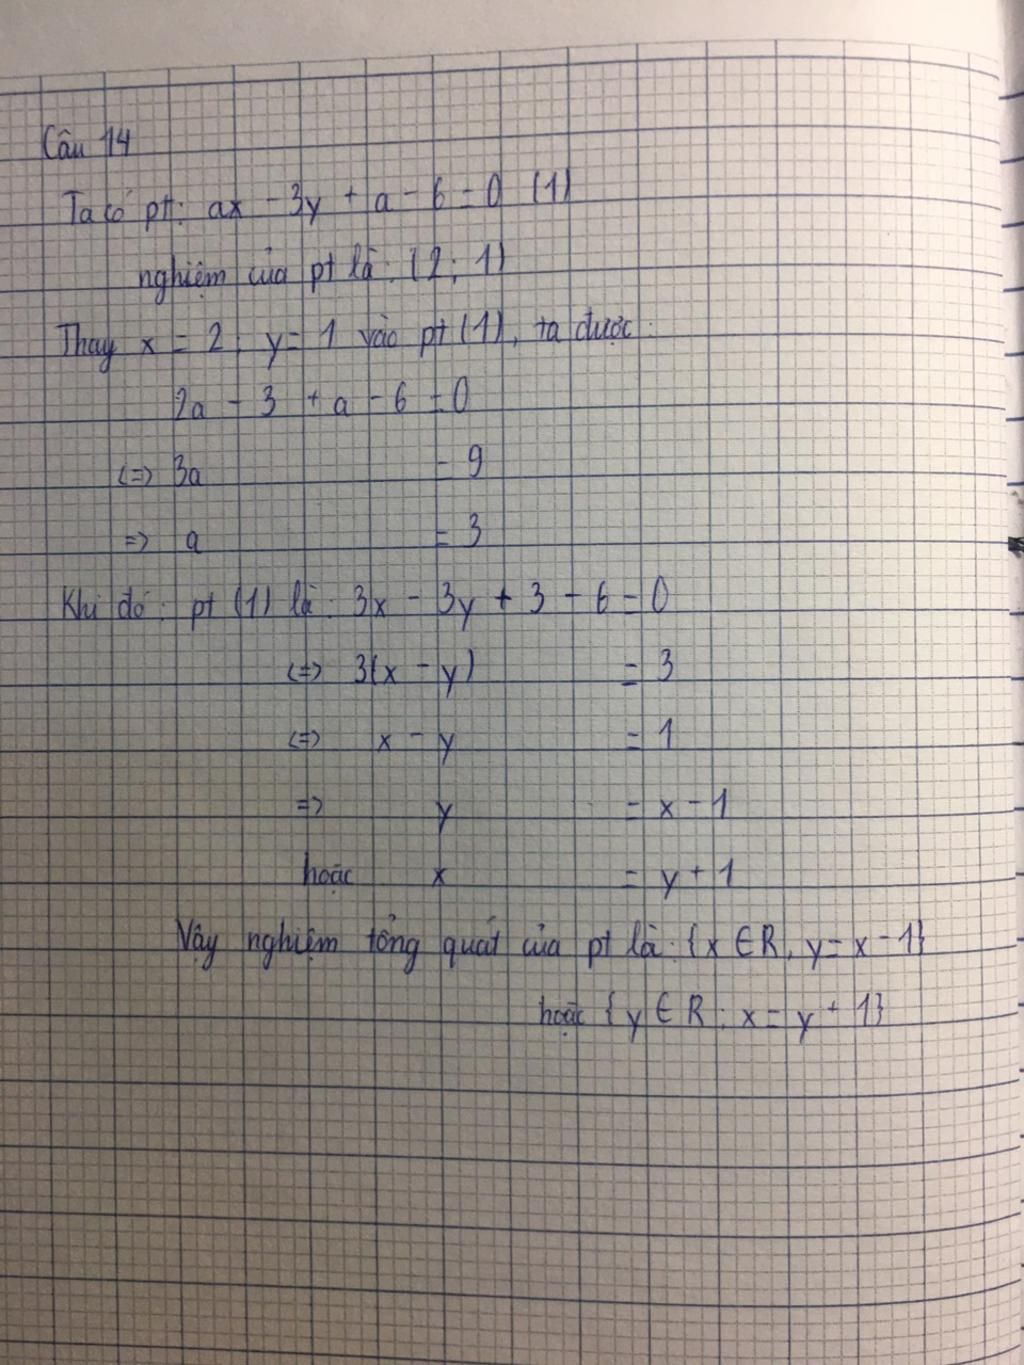 Câu 14
Ta có pt: ax - 3y + a - 6 = 0 (1)
nghiệm của pt là: (2; 1)
Thay x = 2; y = 1 vào pt (1), ta được:
2a - 3 + a - 6 = 0
(=) 3a = 9
=> a = 3
Khi đó: pt (1) là: 3x - 3y + 3 - 6 = 0
(=) 3(x - y) = 3
(=) x - y = 1
=> y = x - 1
hoặc x = y + 1
Vậy nghiệm tổng quát của pt là: {x ∈ R, y = x - 1}
hoặc {y ∈ R; x = y + 1}